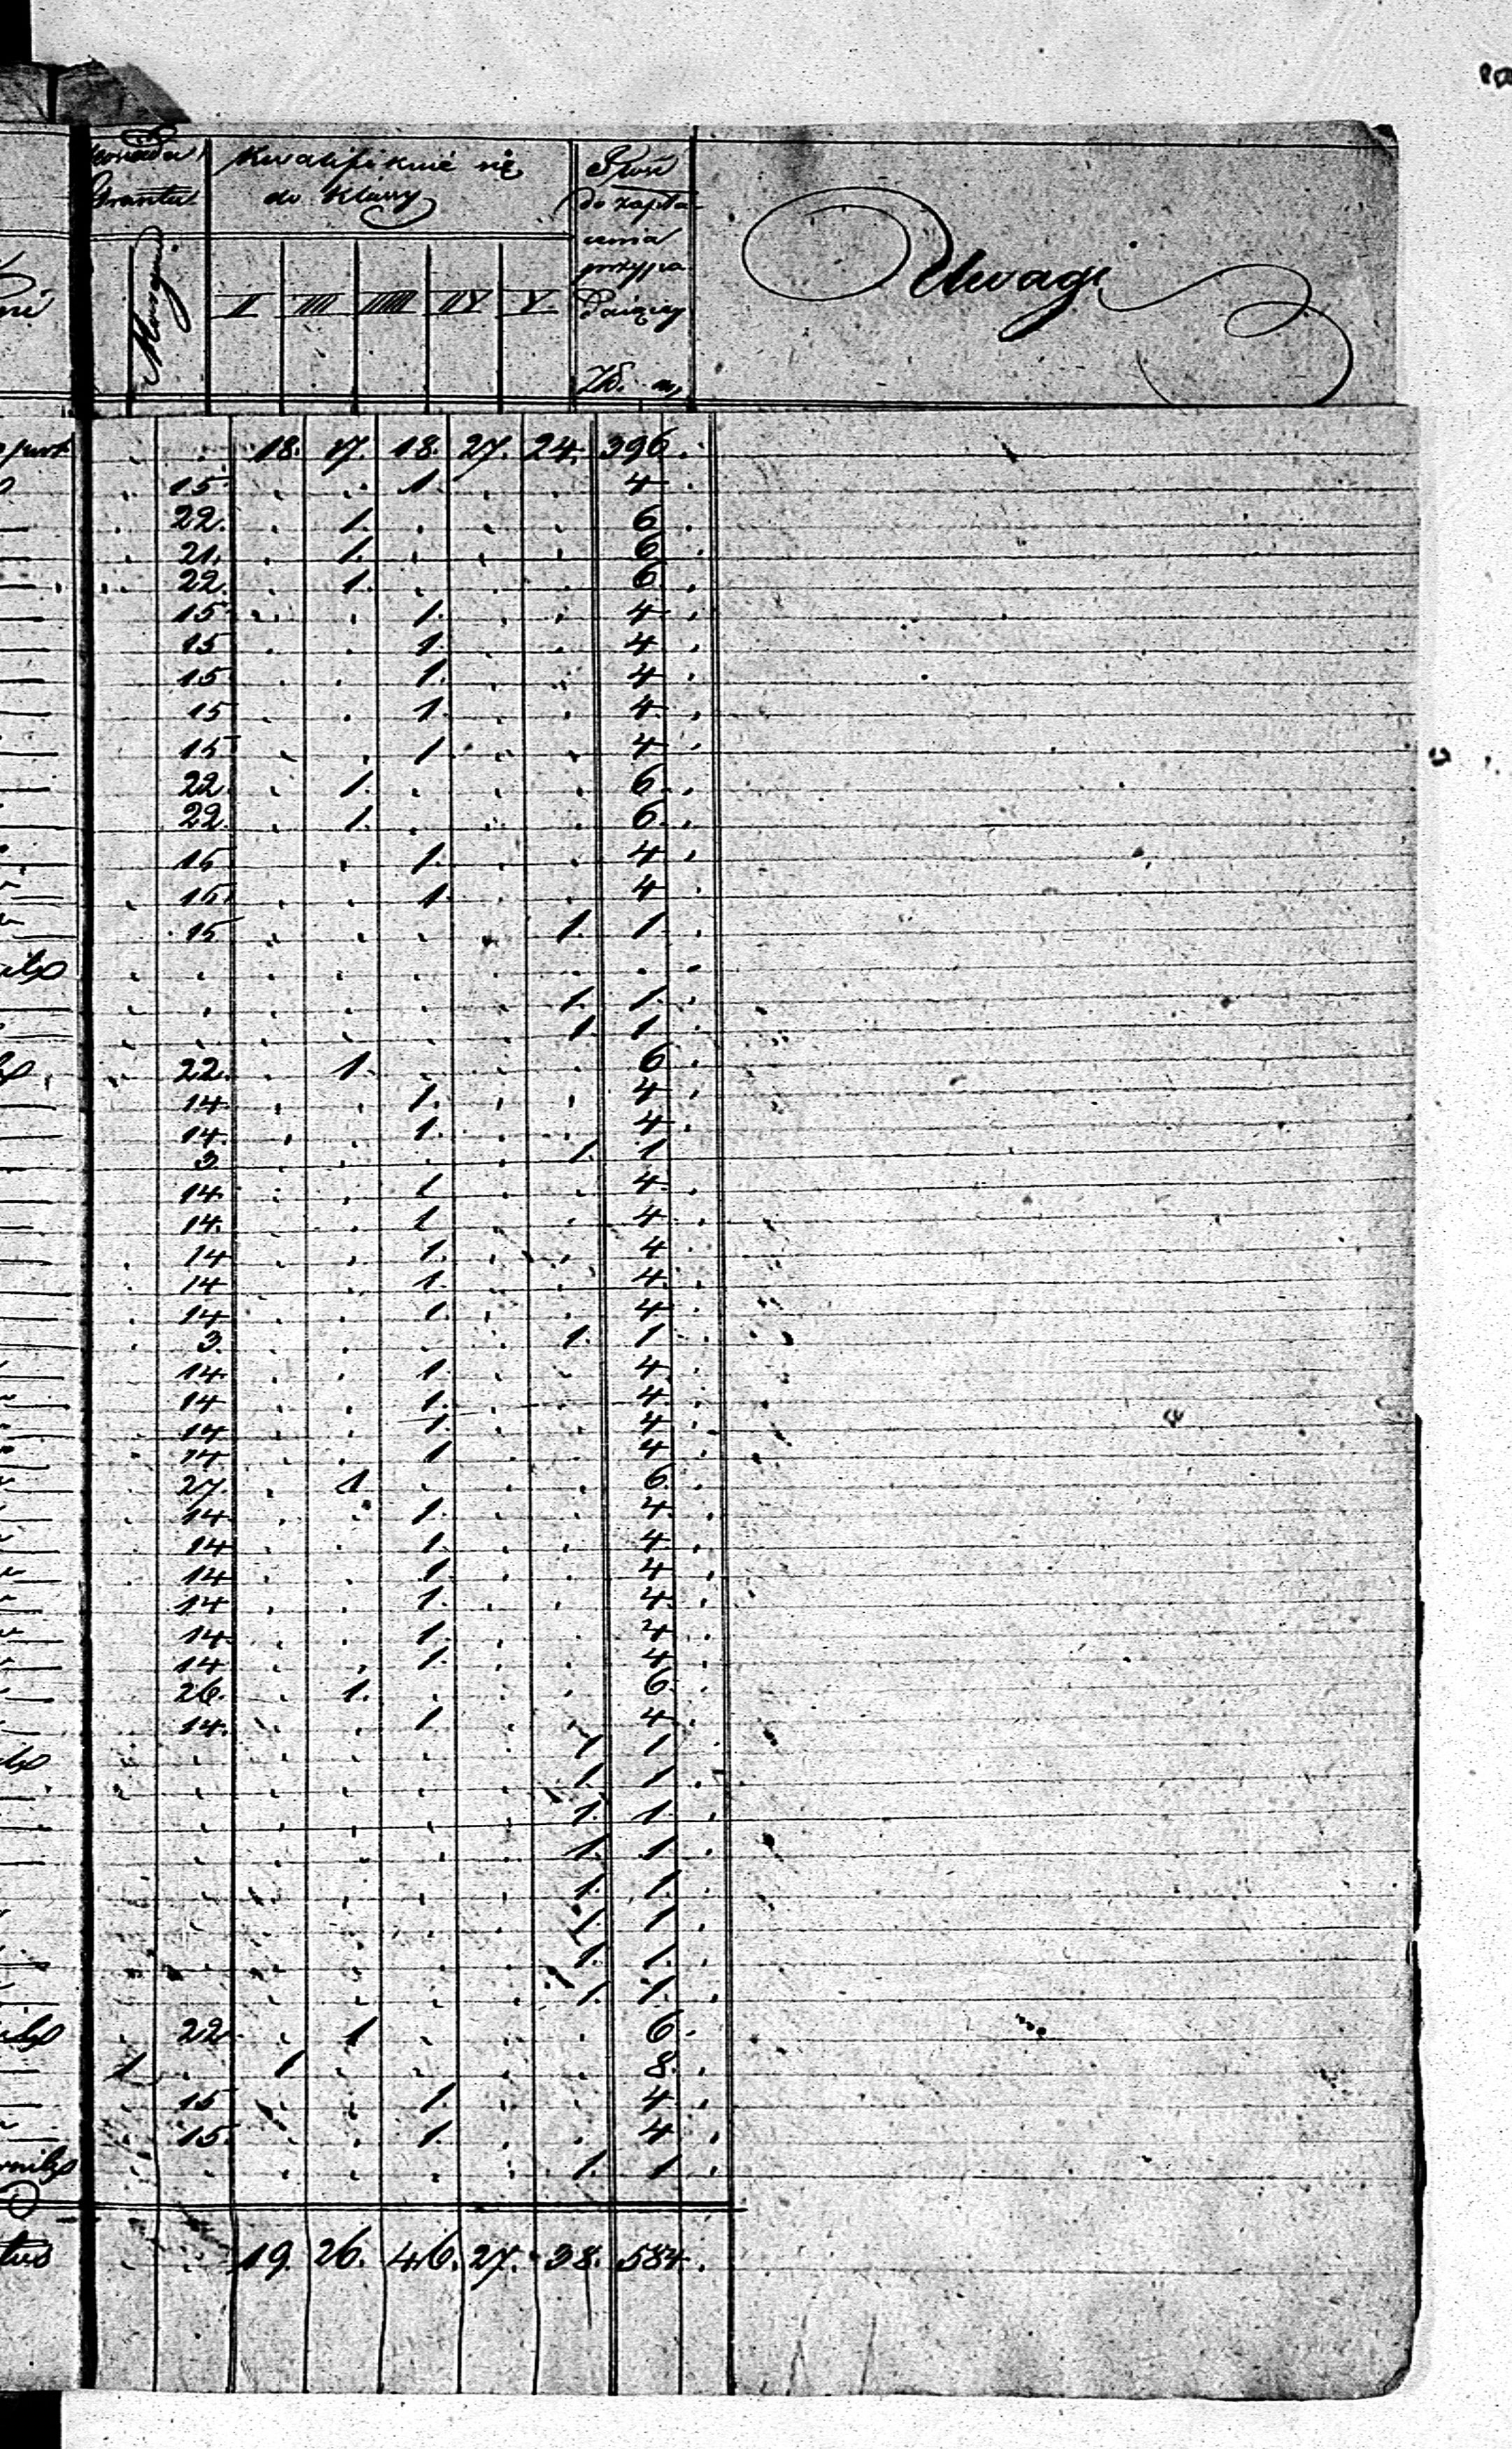 Posiada Gruntu
Kwalifikuie się
do Klassy
Ilość
do zapła-
cenia
przypa-
Uwagi
Morgi
I II III IV V
Zł. gr.
18. 17. 18. 27. 24. 396.
15 1. 4
22. 1. 6
21. 1. 6
22. 1. 6
15 1. 4
15 1. 4
15 1. 4
15 1. 4
15 1. 4
22. 1. 6
22. 1. 6
15 1. 4
15 1. 4
15 1. 1
1. 1.
1. 1.
22. 1. 6
14 1. 4
14. 1. 4
3 1. 1
14. 1 4
14. 1 4
14 1. 4
14 1. 4
14 1. 4
3. 1. 1
14 1. 4
14 1. 4
14 1. 4
14 1 4
27. 1 6
14 1. 4
14 1. 4
14 1. 4
14 1. 4
14 1. 4
14 1. 4
26. 1. 6
14. 1. 4
1 1
1. 1
1. 1.
1. 1.
1. 1.
1. 1.
1. 1.
1. 1.
22 1 6
1 1 8.
15 1. 4
15. 1. 4
1. 1
19. 26. 46. 27. 38. 584.